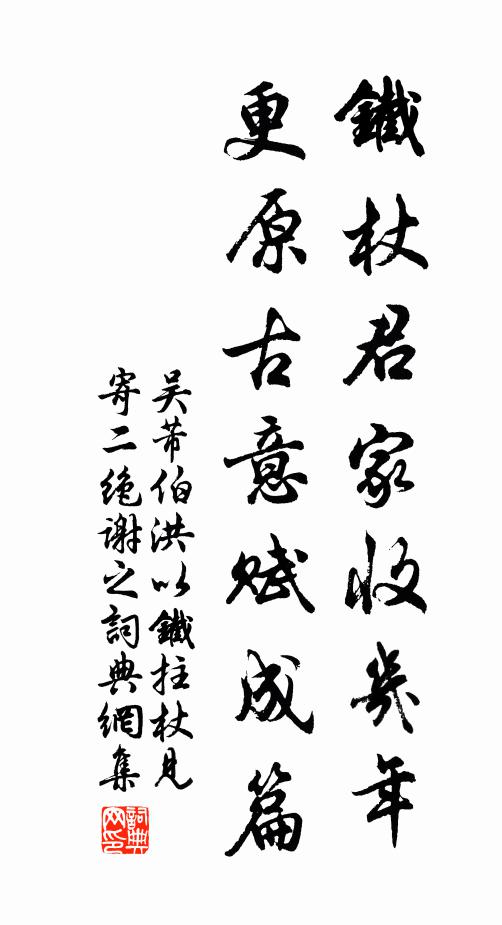 鐵杖君家收幾年
更原古意賦成篇
吴芾伯洪以鐵拄杖見
寄二絶謝之詞典網集
詞典
网印